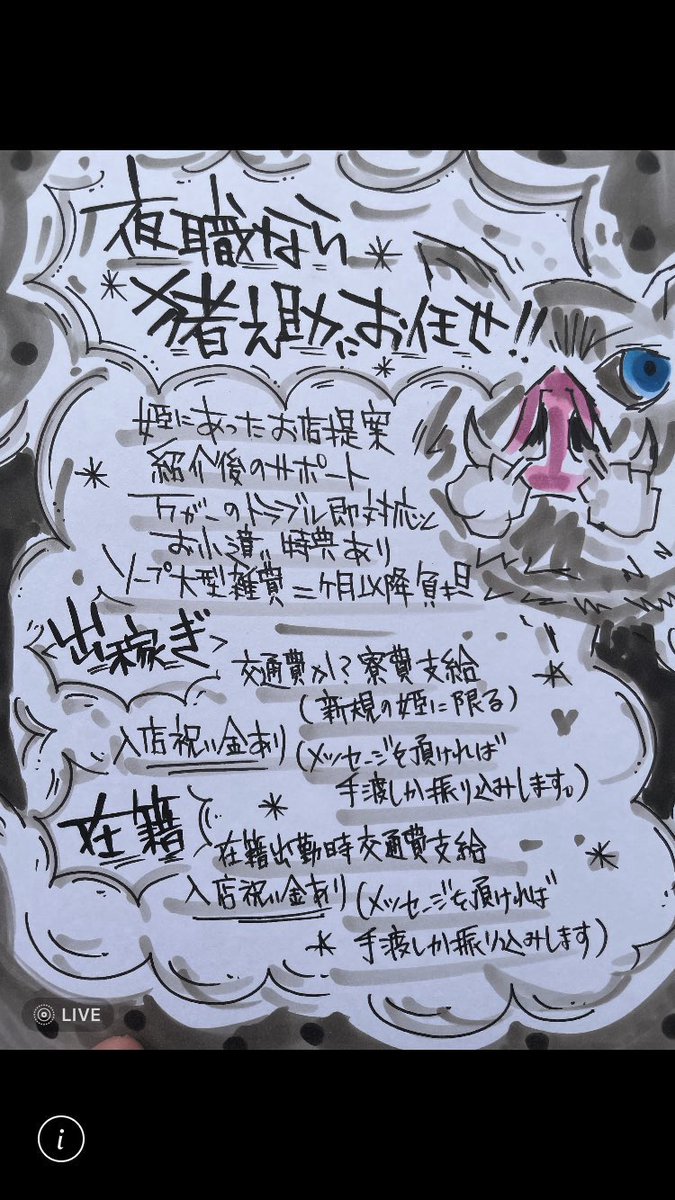 夜職なら
猪之助にお任せ!!
姫にあったお店提案
紹介後のサポート
万が一のトラブル即対応と
お小遣い特典あり
ソープ大型雑費二ヶ月以降負担
出稼ぎ
交通費か寮費支給
(新規の姫に限る)
入店祝い金あり(メッセージを頂ければ
手渡しか振り込みします。)
在籍
在籍出勤時交通費支給
入店祝い金あり(メッセージを頂ければ
手渡しか振り込みします)
LIVE
i